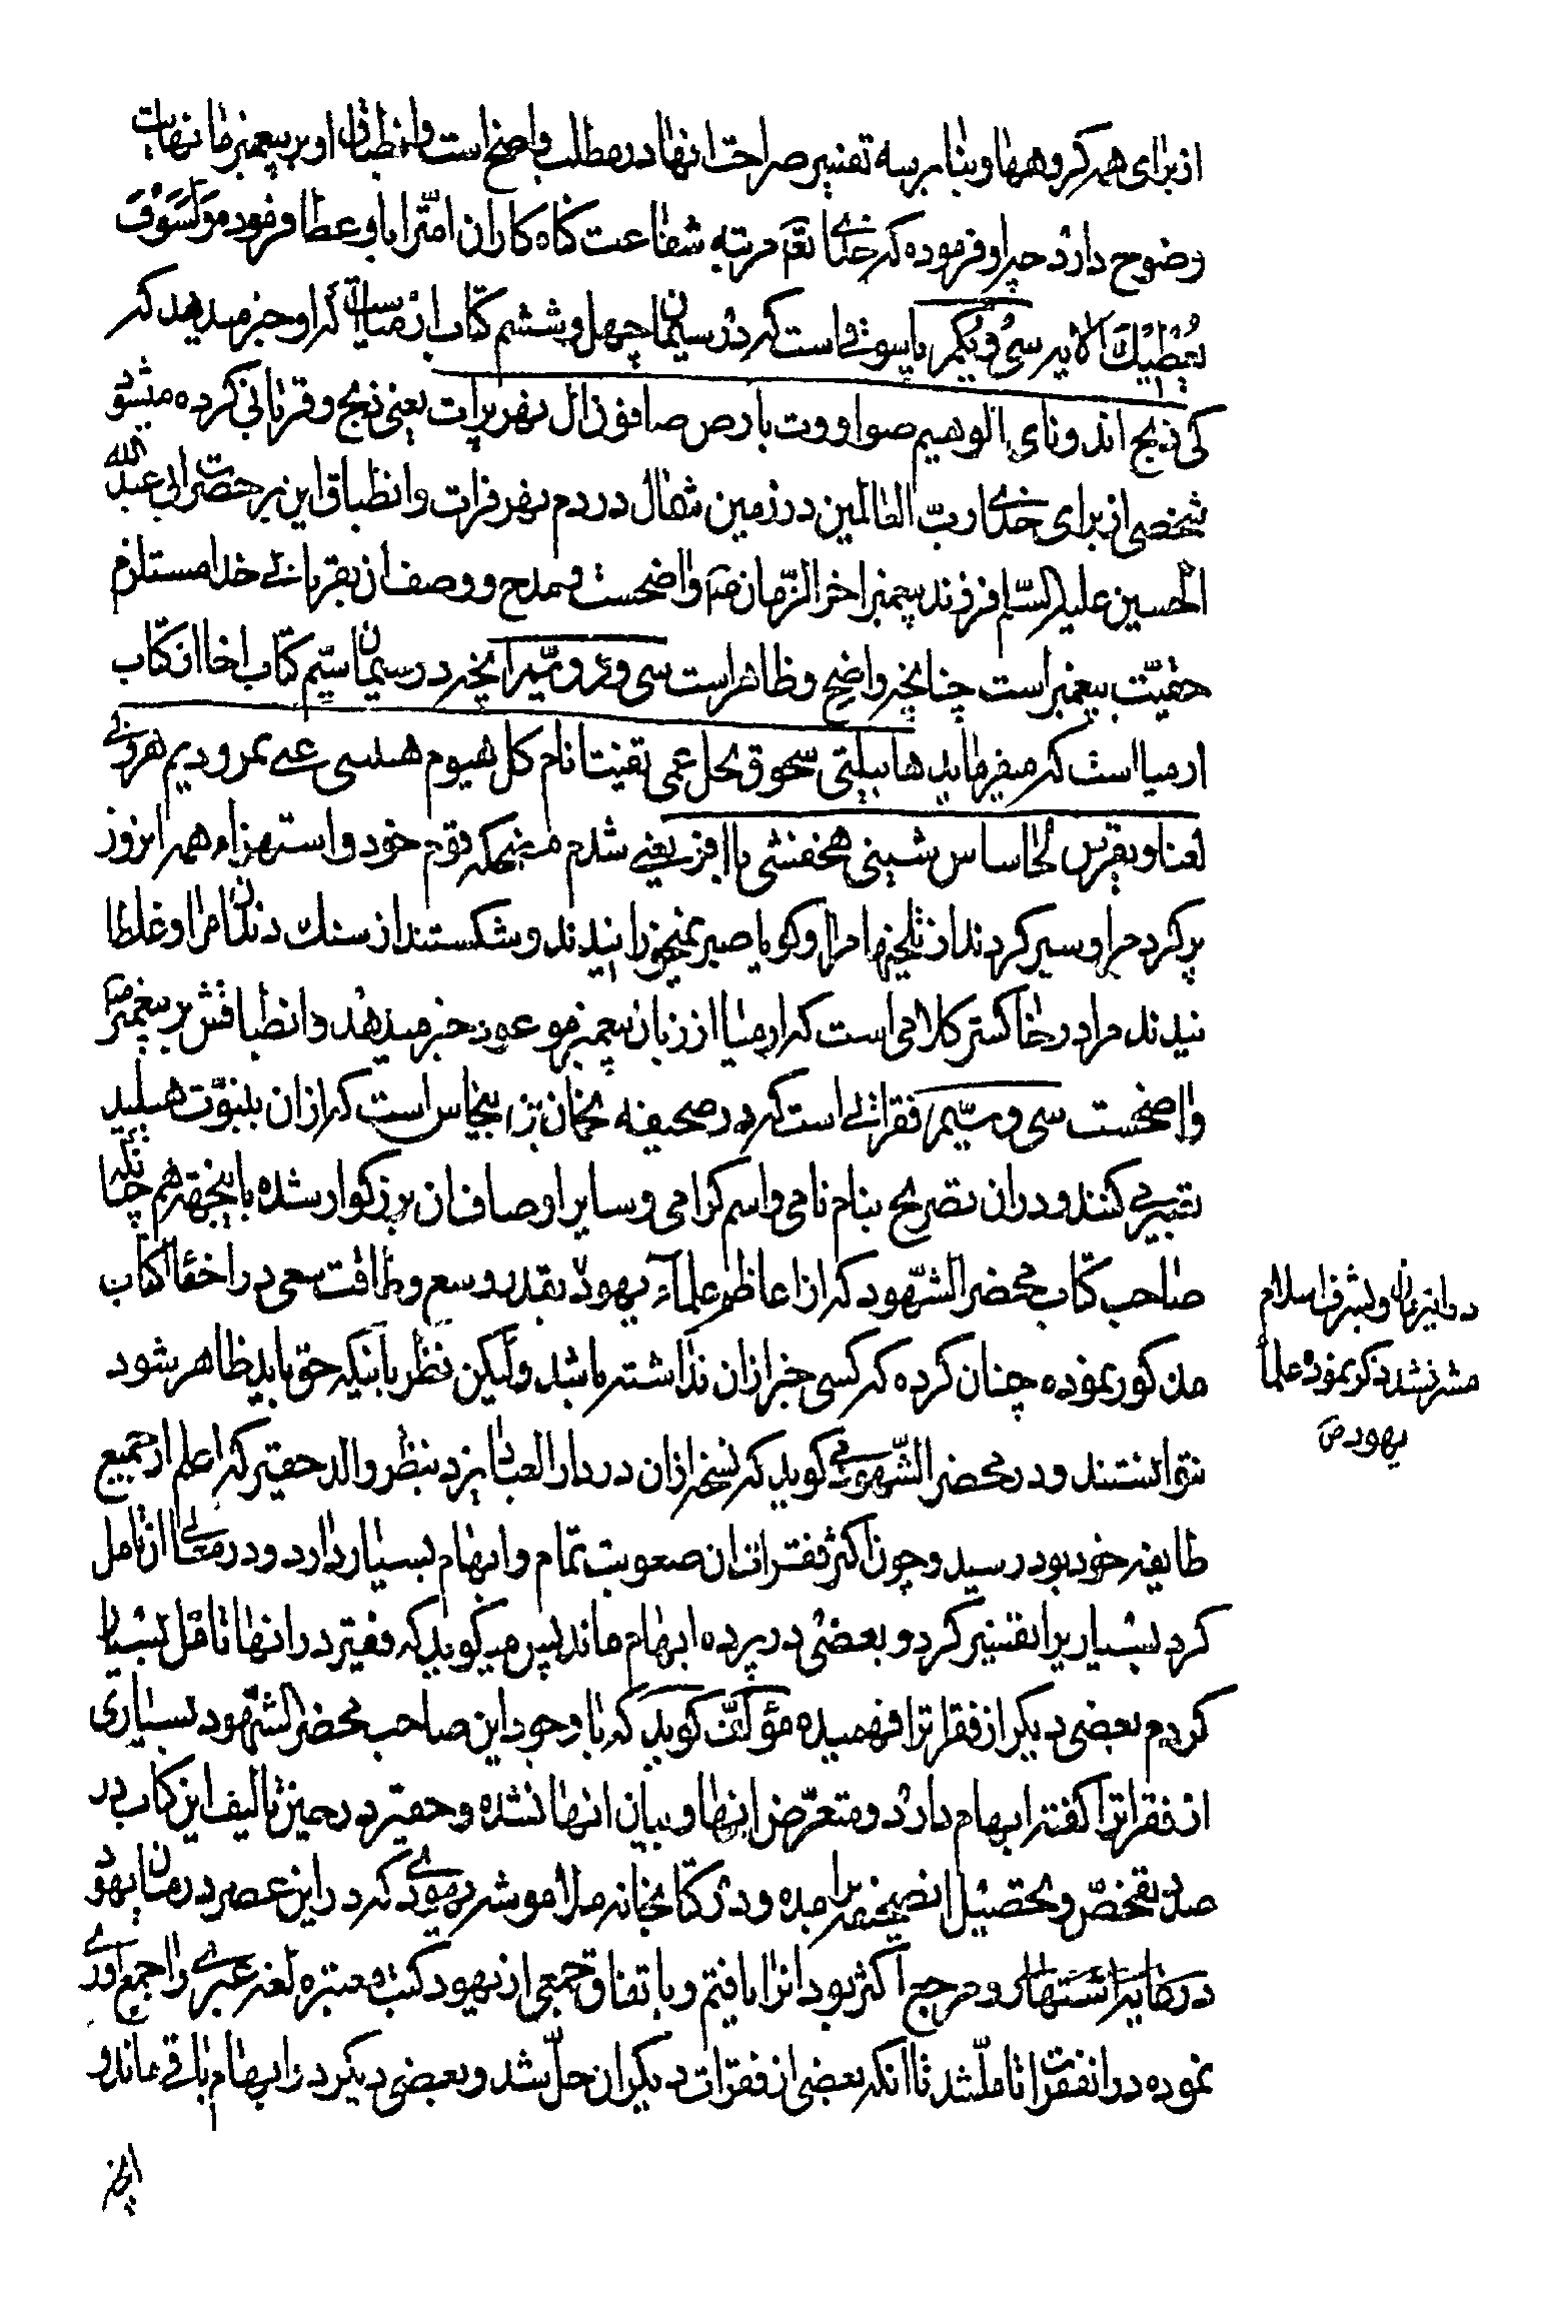 از برای همه کروهها و بنابر سه تفسیر صراحت انها در مطلب واضح است و انطباق او بر پیغمبر ما نهایت
وضوح دارد چه او فرموده که خدای تعم مرتبه شفاعت کناه کاران امّت را باو عطا فرموده وَلَسَوْفَ
یُعْطِیْكَ الایه سی و یکم پاسوقی است که در سیمان چهل و ششم کتاب ارمیا است که او خبر میدهد که
کی ذبح اذونای الوهیم صواووت بارص صافون ال نهر پرات یعنی ذبح و قربانی کرده میشود
شخصی از برای خدای ربّ العالمین در زمین شمال در دم نهر فرات و انطباق این بر حضرت ابی عبد الله
الحسین علیه السّلام فرزند پیغمبر اخر الزّمان ص واضحست و مدح و وصف ان بقربانی خدا مستلزم
حقیّت پیغمبر است چنانچه واضح و ظاهر است سی و دویّم انچه در سیمان سیّم کتاب اخا از کتاب
ارمیا است که میفرماید هاییتی سحوق لخل عمی نقینتانام کل هیوم هسبی عی بمرودیم هروی
لعنا ویقرس لحاساس شینی هخفشی باافر یعنی شدم مضحکه قوم خود و استهزاء همه انروز
پر کرد مرا و سیر کردند از تلخیها مرا و کویا صبر بمن خورانیدند و شکستند از سنك دندان مرا و غلطا
نیدند مرا در خاکستر کلامی است که ارمیا از زبان پیغمبر موعود خبر میدهد و انطباقش بر پیغمبر ص
واضحست سی و سیّم فقراتی است که در صحیفه نحمان بن پنحاس است که از ان بنبوّت هیلید
تعبیر می کنند و در ان تصریح بنام نامی و اسم کرامی و سایر اوصاف ان بزرکوار شده باینجهة هم چنانکه
صاحب کتاب محضر الشّهود که از اعاظم علماء یهود بقدر وسع و طاقت سعی در اخفاء کتاب
مذکور نموده چنان کرده که کسی خبر از ان نداشته باشد ولیکن نظر باینکه حق باید ظاهر شود
نتوانستند و در محضر الشّهود می کوید که نسخه از ان در دار العباد یزد بنظر والد حقیر که اعلم از جمیع
طایفه خود بود رسید و چون اکثر فقرات ان صعوبت تمام و ابهام بسیار دارد و در معانی ان تامل
کرد بسیاریرا تفسیر کرد و بعضی در پرده ابهام ماند پس میکوید که فقیر در انها تامّل بسیار
کردم بعضی دیکر از فقراترا فهمیده مؤلّف کوید که با وجود این صاحب محضر الشّهود بسیاری
از فقراترا کفته ابهام دارد و متعرّض اینها و بیان انها نشده و حقیر در حین تالیف این کتاب در
صدد تفحّص و تحصیل انصحیفه بر امده و در کتابخانه ملا موشه یهودی که در این عصر در میان یهود
در غایه اشتهار و مرجع اکثر بود انرا یافتم و باتفاق جمعی از یهود کتب معتبره لغه عبری را جمع اوری
نموده در انفقرات تامل شد تا انکه بعضی از فقرات دیکر ان حلّ شد و بعضی دیکر در ابهام باقی ماند و
انچه
در این زمان و بشرف اسلام
مشرف شد ذکر نموده علماء
یهود ص